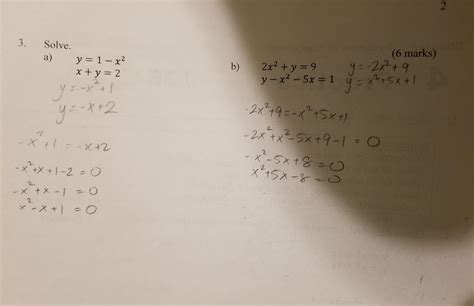 2
3. Solve.
(6 marks)
a) y = 1 − x²
x + y = 2
y = -x²+1
y = -x+2
-x²+1 = -x+2
-x²+x+1-2 = 0
-x²+x-1 = 0
x²-x+1 = 0
b) 2x² + y = 9 y = -2x²+9
y − x² − 5x = 1 y = x²+5x+1
-2x²+9=-x²+5x+1
-2x²+x²-5x+9-1 = 0
-x²-5x+8=0
x²+5x-8=0